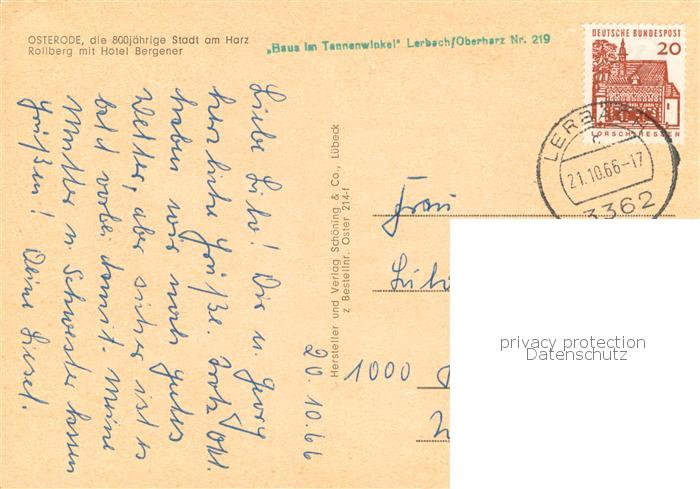 OSTERODE, die 800jährige Stadt am Harz
Rollberg mit Hotel Bergener
„Haus im Tannenwinkel" Lerbach/Oberharz Nr. 219
DEUTSCHE BUNDESPOST
20
LORSCH/HESSEN
LERBACH
21.10.66-17
3362
20.10.66
Liebe Lilo! Dir u. Georg
herzliche Grüße. Trotz Okt.
haben wir noch gutes
Wetter, aber sicher ist es
bald vorbei damit. Meine
Mutter u. Schwester lassen
grüßen! Deine Liesel.
Hersteller und Verlag Schöning & Co., Lübeck
z Bestellnr. Oster 214-f
Frau
1000
privacy protection
Datenschutz